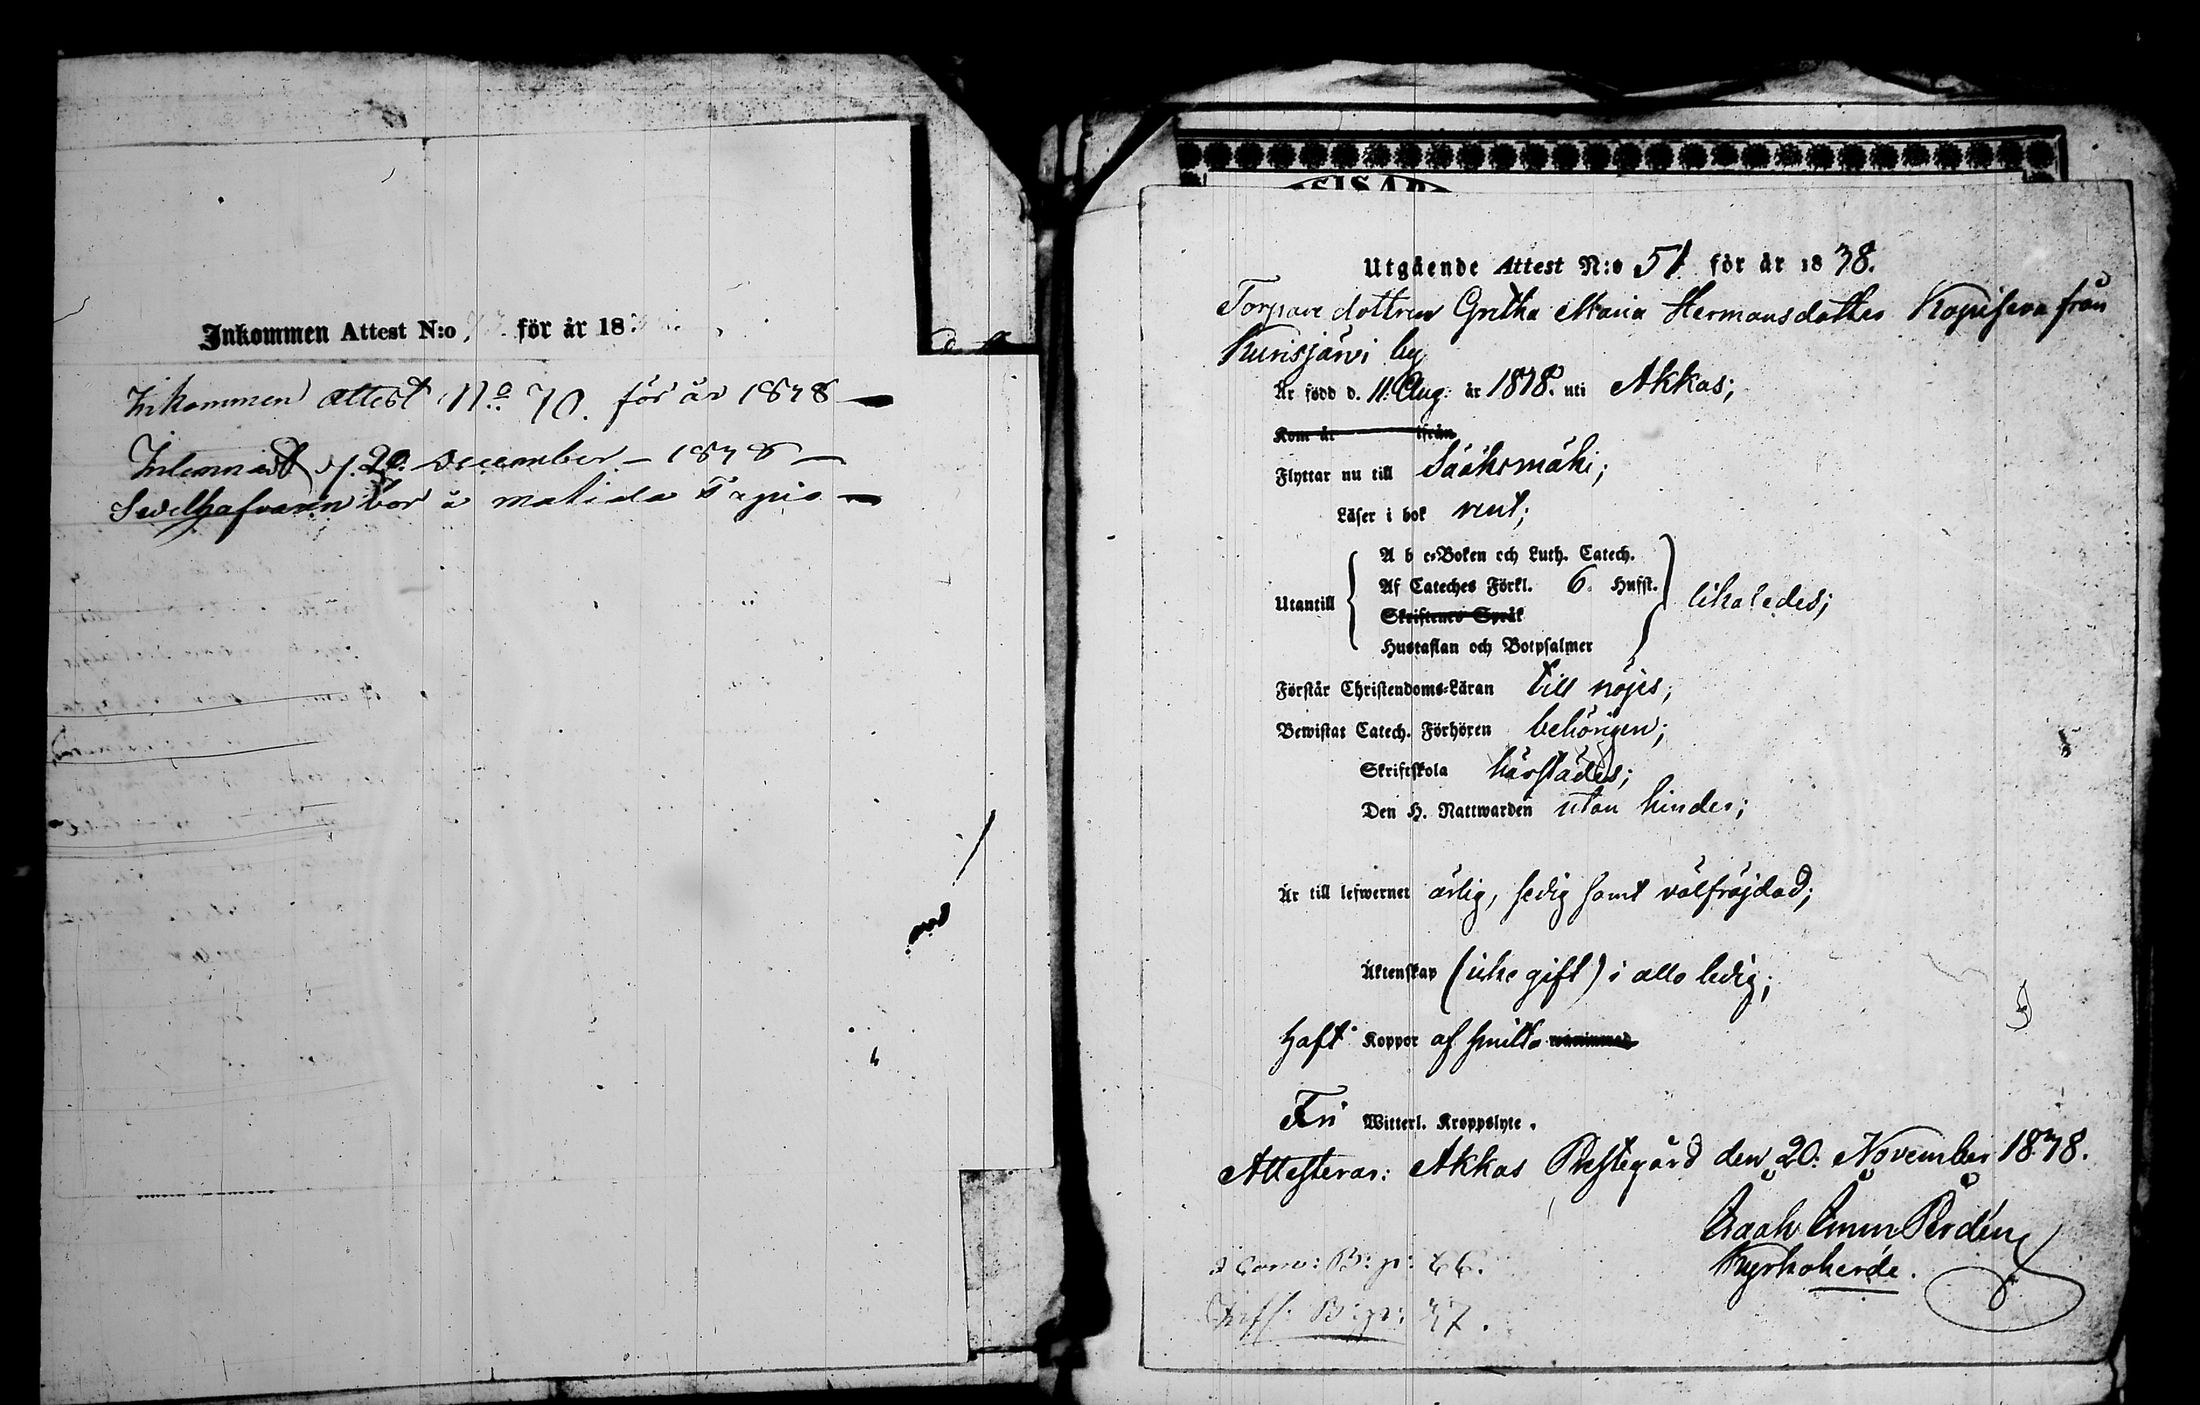 Inkommen Attest N:o för år 18
Inkommen attest N:o 70. för år 1878 —
Inlemnadt d. 20. December — 1878 —
Sedelhafvaren bor å matida Tapio —
SISAR
Utgående Attest N:o 51 för år 1878.
Torpare dottren Gretha Maria Hermansdotter från
Kurisjärvi by
Är född d. 11. Aug. år 18 8. uti Akkas;
Kom år ifrån
Flyttar nu till Sääksmäki;
Läser i bok rent;
A b c-Boken och Luth. Catech.
Af Cateches Förkl. 6. Hufst.
Utantill likaledes;
Skriftenes Språk
Hustaflan och Botpsalmer
Förstår Christendoms-Läran till nöjes;
Bewistat Catech. Förhören behörigen;
Skriftskola härstädes;
Den H. Nattwarden utan hinder;
Är till lefwernet ärlig, sedig samt välfräjdad;
Äktenskap (icke gift) i allo ledig;
Haft Koppor af smitta
Fri Witterl. Kroppslyte.
Attesterar: Akkas Prestegård den 20. November 1878.
Kyrkoherde.
B: p: 66.
B: p: 37.